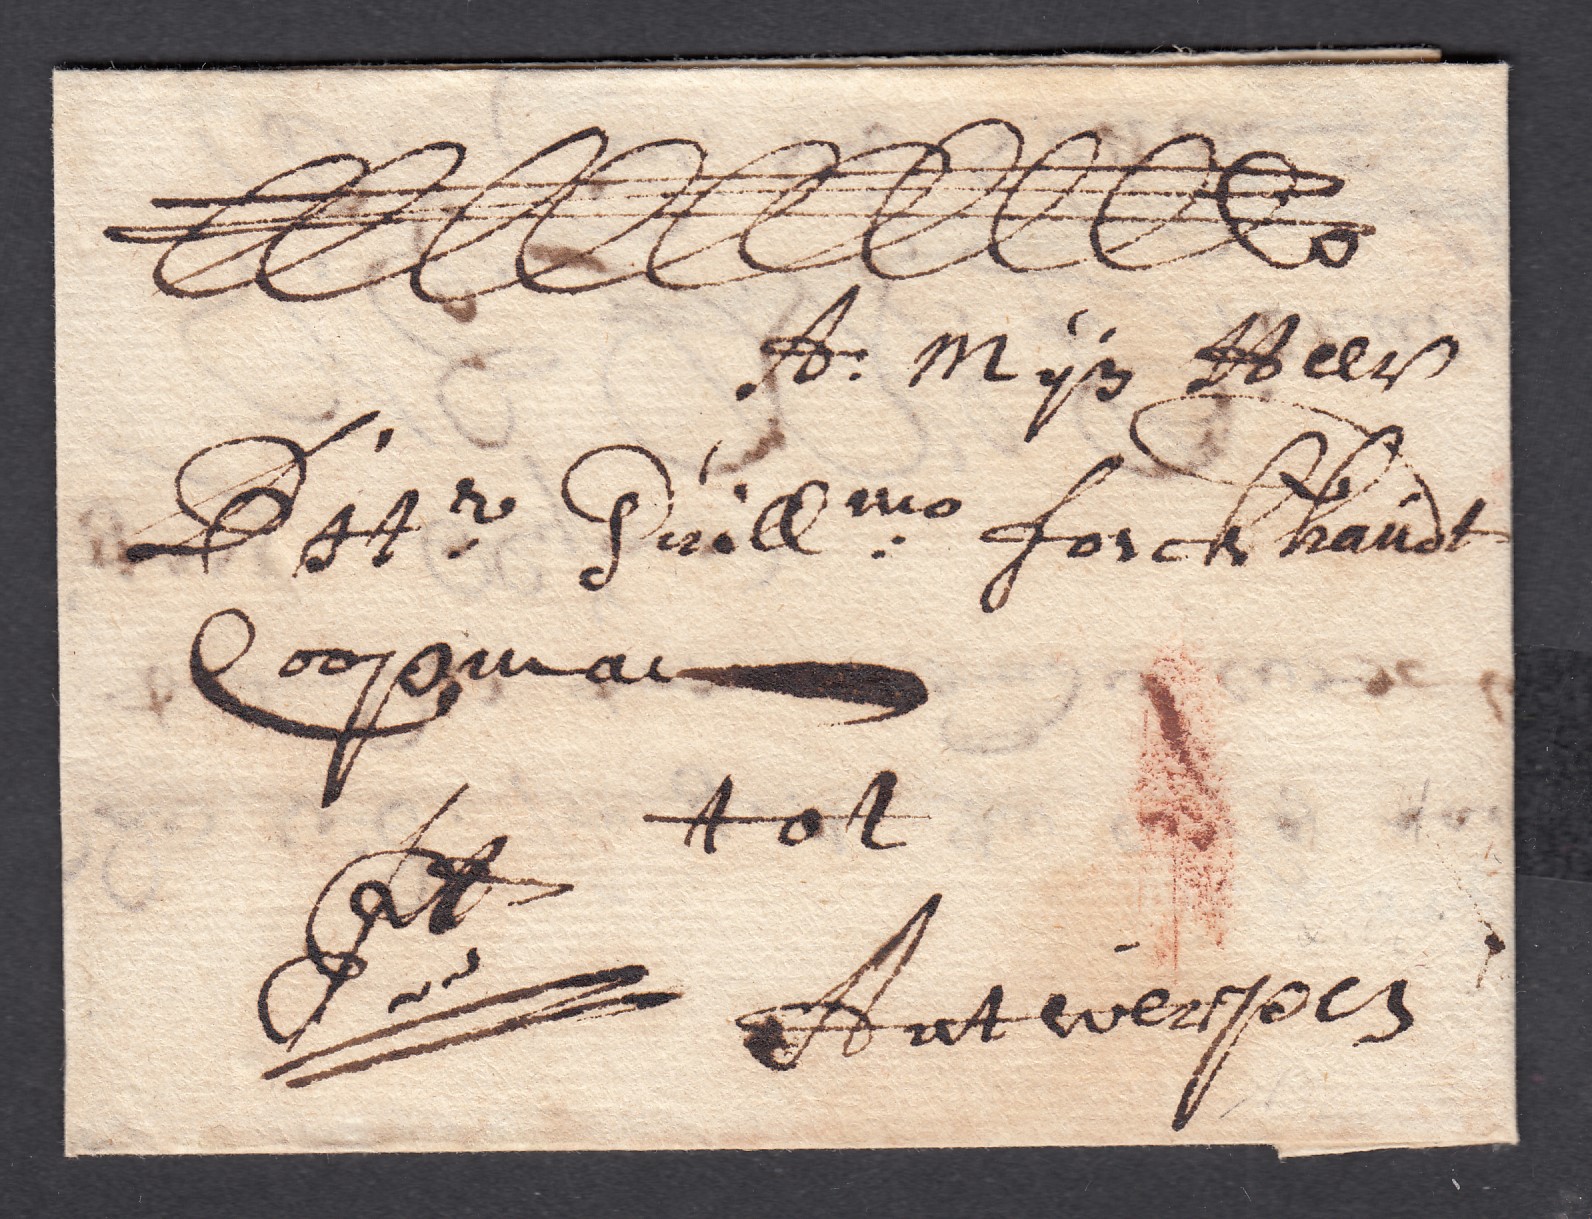 A: Mijn Heer
D'Hr. Guill.mo forckhaudt
Coopman
tot
Antwerpen